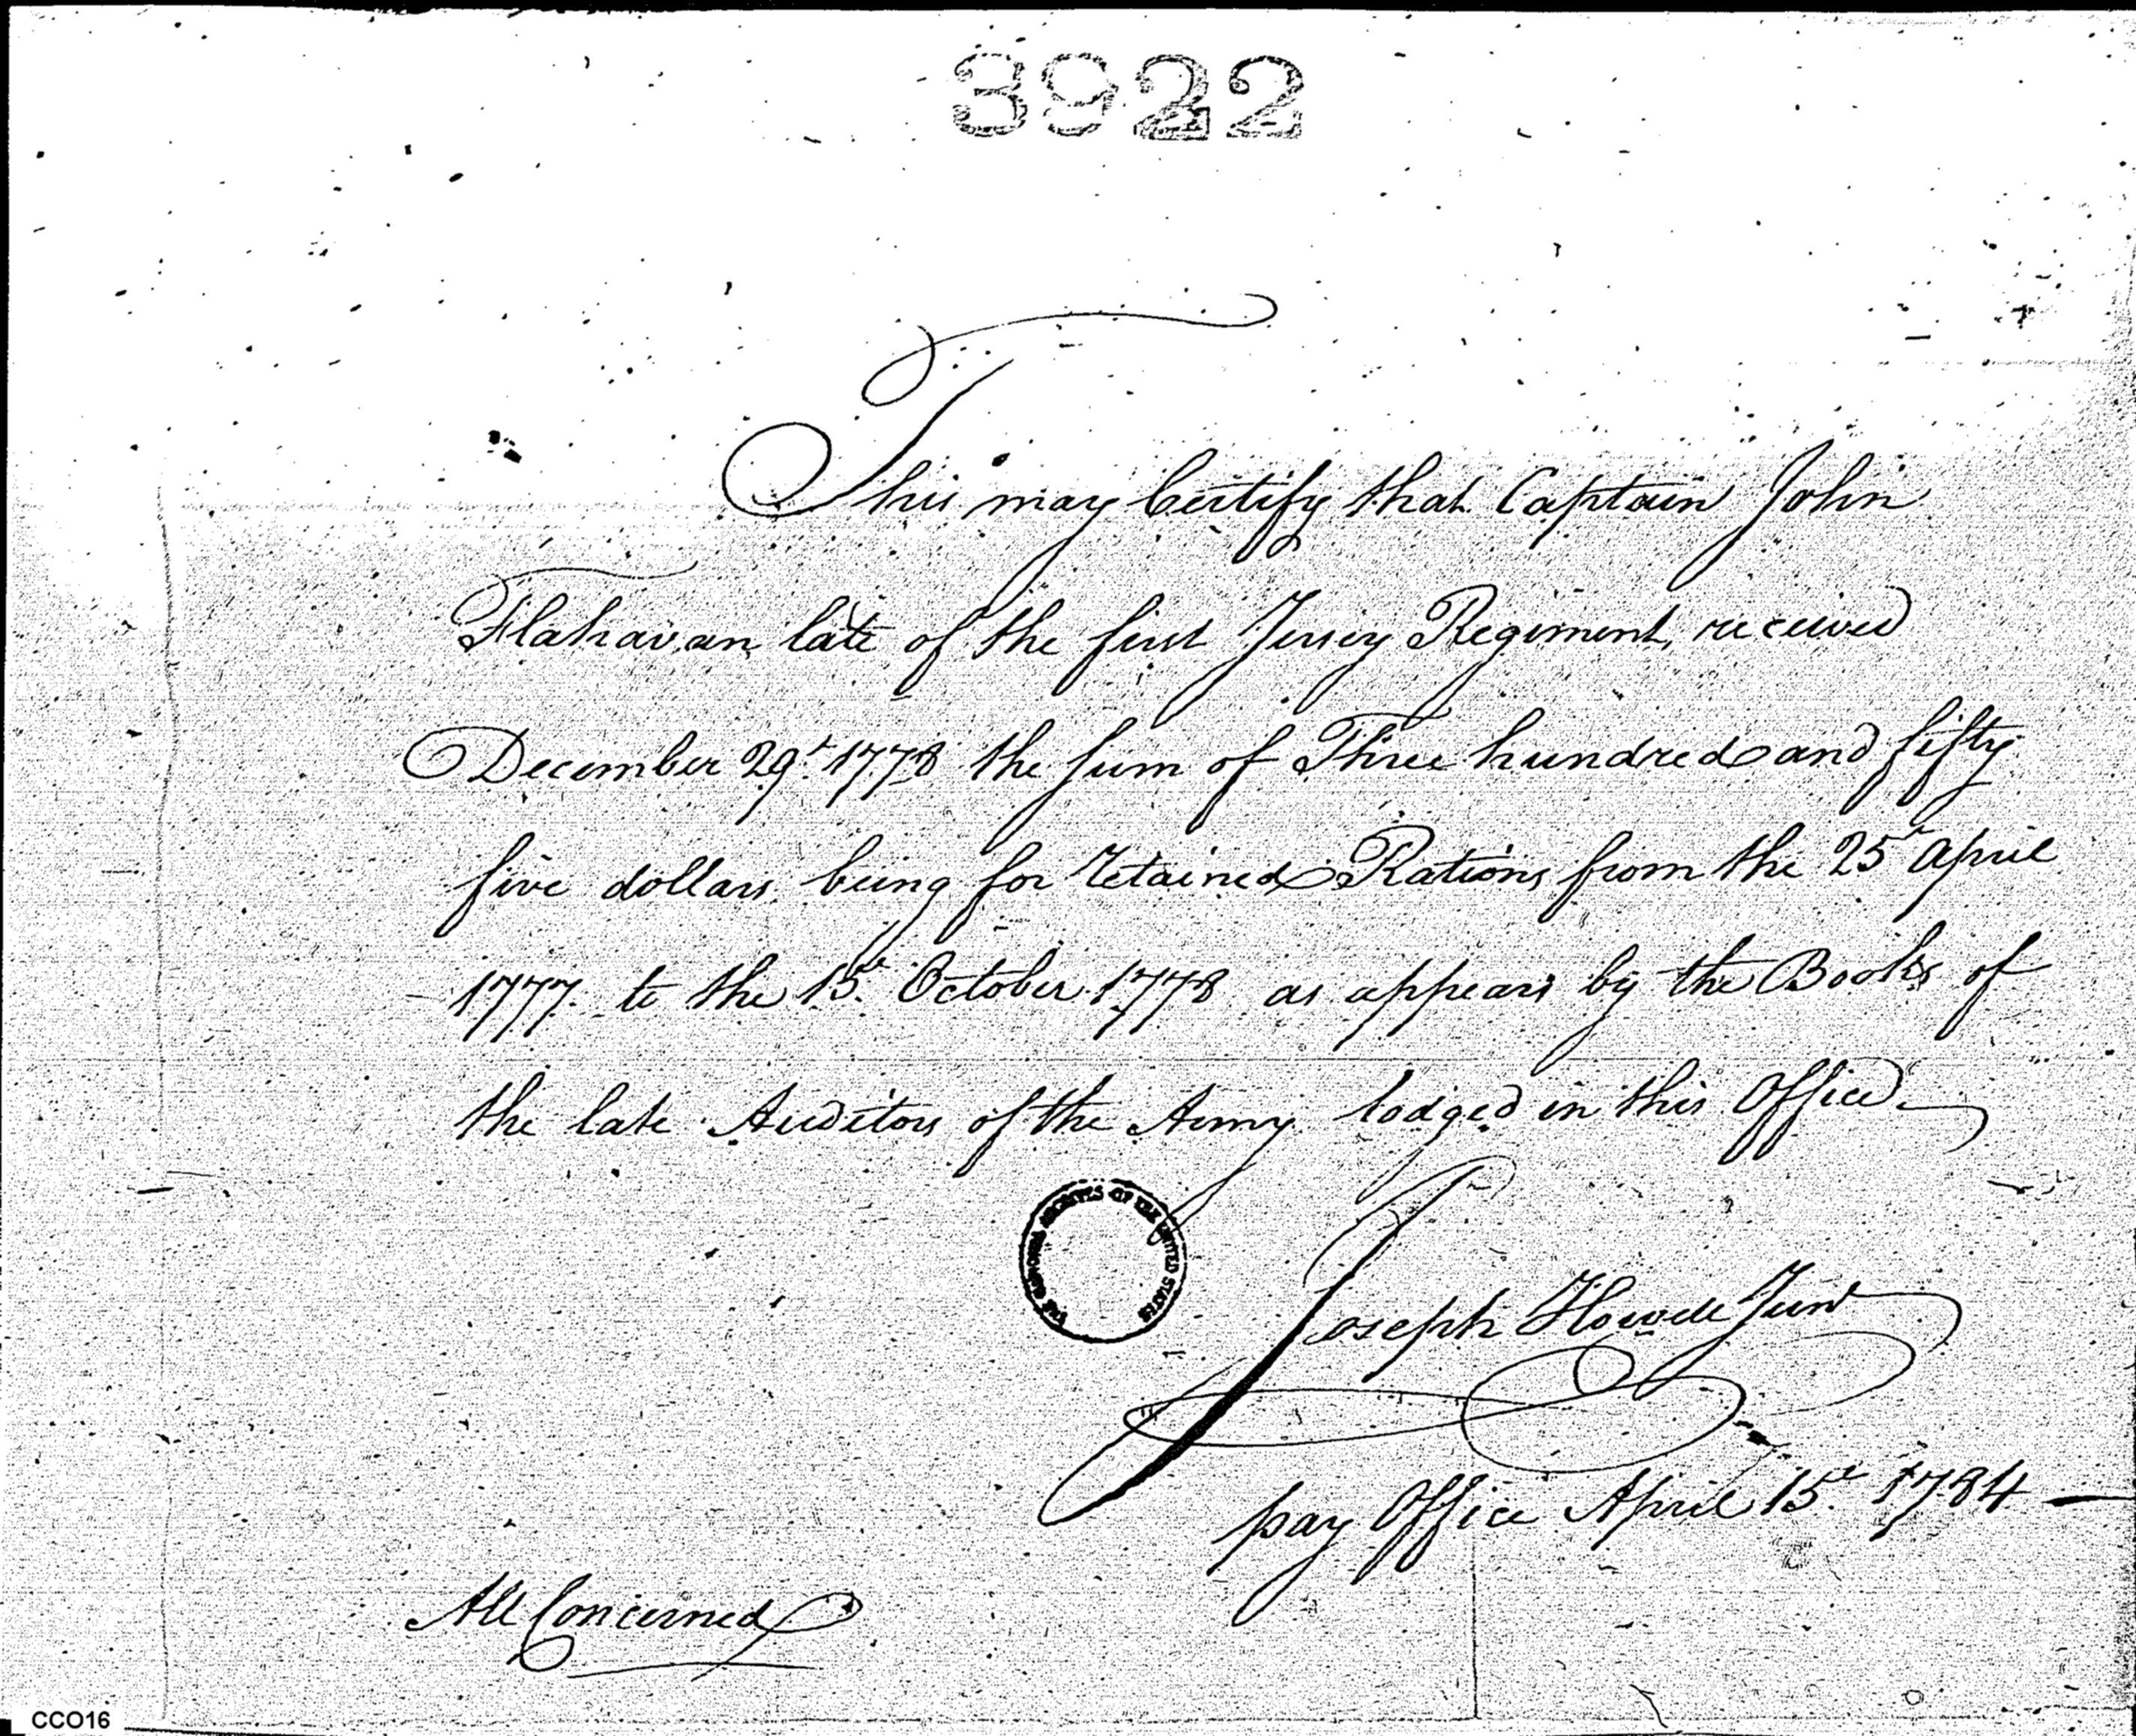 3922
This may Certify that Captain John
Flahavan late of the first Jersey Regiment, received
December 29th 1778 the sum of Three hundred and fifty
five dollars being for retained Rations from the 25th April
1777 to the 15th October 1778 as appears by the Books of
the late Auditors of the Army lodged in this Office
THE NATIONAL ARCHIVES OF THE UNITED STATES
Joseph Howell Junr
pay Office April 15th 1784
All Concerned
CCO16